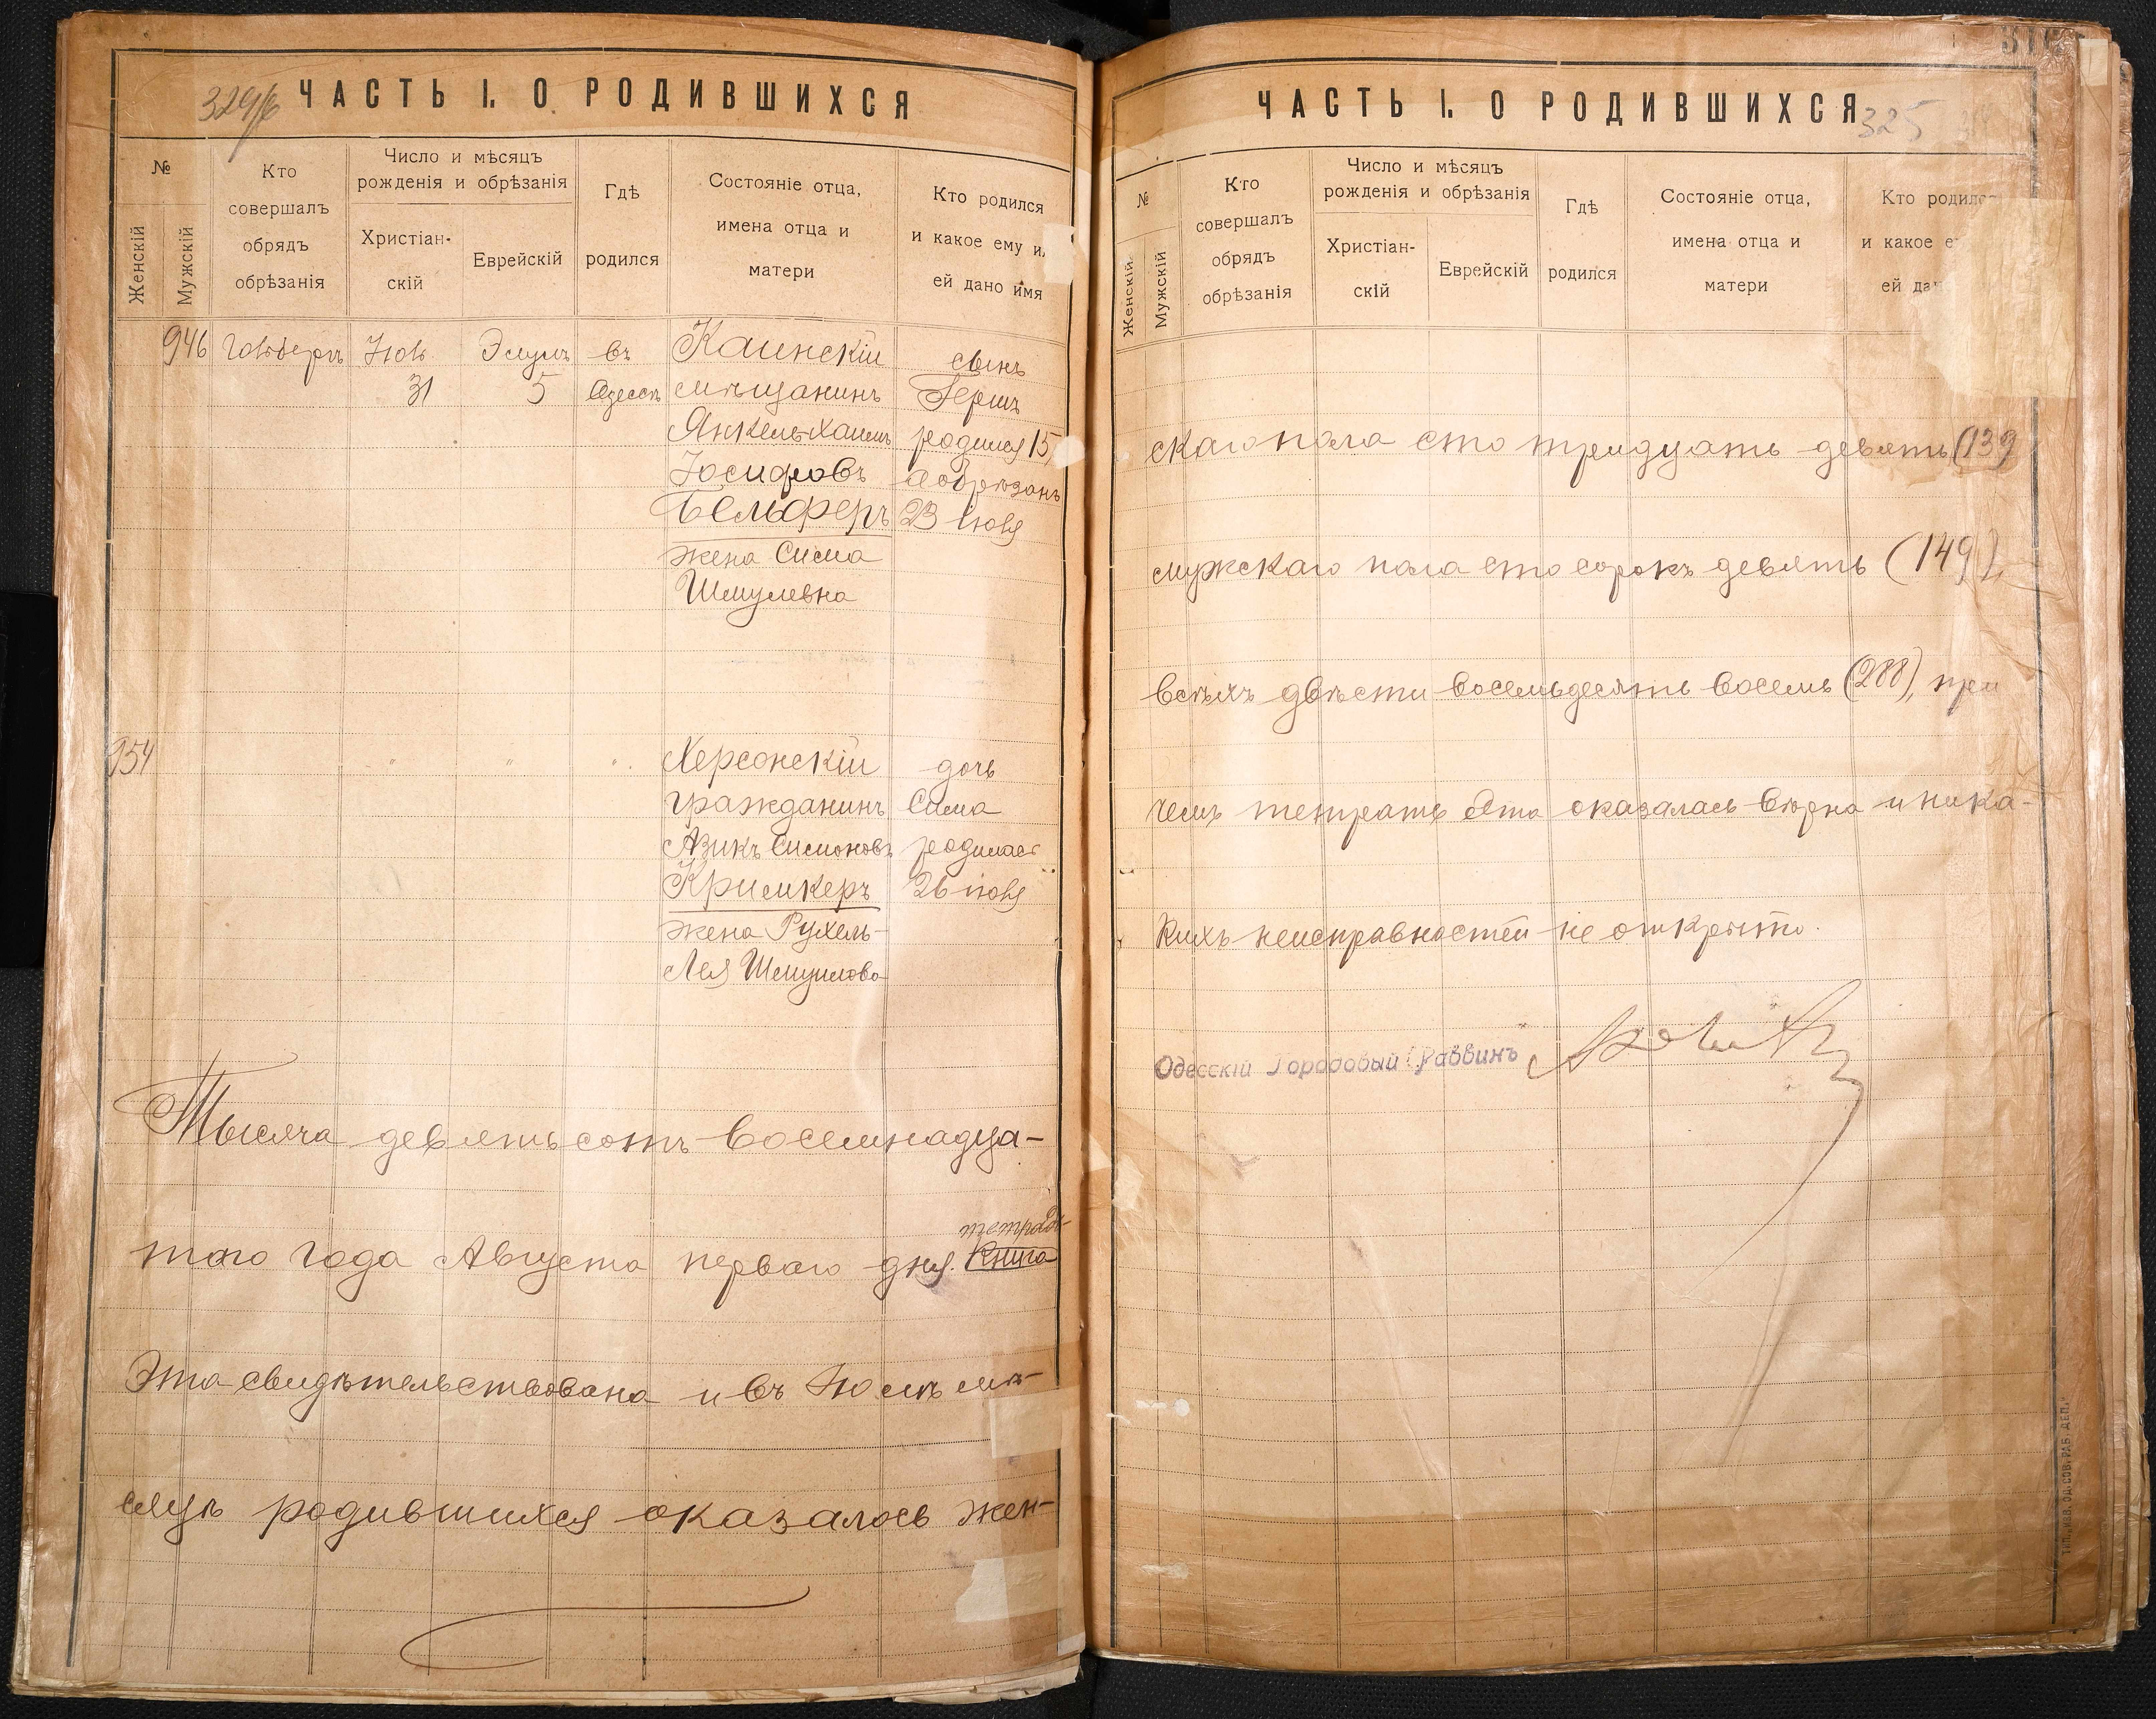 ЧАСТЬ I. О РОДИВШИХСЯ
№
Женскій
Мужскій
Кто
совершалъ
обрядъ
обрѣзанія
Число и мѣсяцъ
рожденія и обрѣзанія
Христіан-
скій
Еврейскій
Гдѣ
родился
Состояніе отца,
имена отца и
матери
Кто родился
и какое ему и
ей дано имя
946
Іюль
31
5
въ
Одессѣ
Каинскій
мѣщанинъ
Янкель Хаимъ
Іосифовъ
Бельферъ
жена Сима
Шмулевна
сынъ
Гершъ
родился 15,
а обрѣзанъ
23 іюля
954
" " "
Херсонскій
гражданинъ
Азикъ Симоновъ
Кримкеръ
жена Рухель-
Лея Шмулова
дочь
Сима
родилась
26 іюля
Тысяча девятьсотъ восемнадца-
таго года Августа перваго дня. тетрадь
Книга
Эта свидѣтельствована и въ Іюлѣ мѣ-
сяцѣ родившихся оказалось жен-
ЧАСТЬ I. О РОДИВШИХСЯ
325
№
Женскій
Мужскій
Кто
совершалъ
обрядъ
обрѣзанія
Число и мѣсяцъ
рожденія и обрѣзанія
Христіан-
скій
Еврейскій
Гдѣ
родился
Состояніе отца,
имена отца и
матери
Кто родилс
и какое е
ей дан
скаго пола сто тридцать девять (139
мужскаго пола сто сорокъ девять (149),
всѣхъ двѣсти восемьдесятъ восемь (288), при
чемъ тетрать эта оказалась вѣрна и ника-
кихъ неисправностей не открыто.
Одесскій Городовый Раввинъ